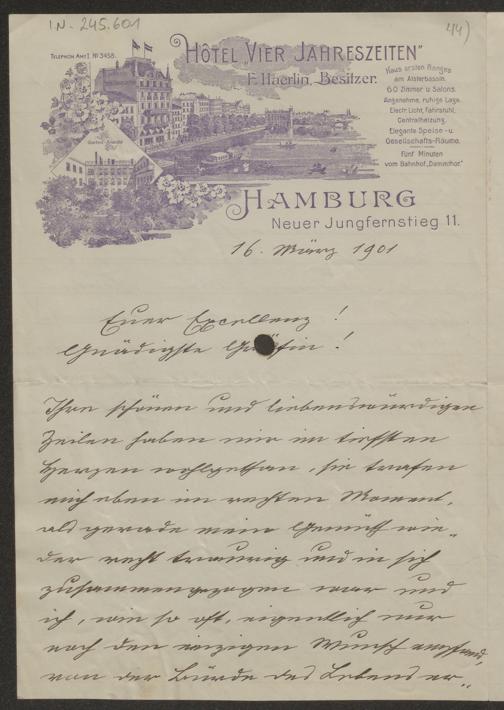 I.N. 245.601
44)
TELEPHON AMT I. № 3458.
"HÔTEL VIER JAHRESZEITEN"
F. Haerlin, Besitzer.
Haus ersten Ranges
am Alsterbassin.
60 Zimmer u. Salons.
Angenehme, ruhige Lage.
Electr. Licht, Fahrstuhl,
Centralheizung.
Elegante Speise- u.
Gesellschafts-Räume.
Fünf Minuten
vom Bahnhof „Dammthor."
HAMBURG
Neuer Jungfernstieg 11.
16. März 1901
Euer Excellenz!
Gnädigste Gräfin!
Ihre schönen und liebenswürdigen
Zeilen haben mir im tiefsten
Herzen wohlgethan, sie trafen
mich eben im rechten Moment,
als gerade mein Gemüth wie„
der recht traurig und in sich
zusammengezogen war und
ich, wie so oft, eigentlich nur
noch den einzigen Wunsch empfand,
von der Bürde des Lebens er„